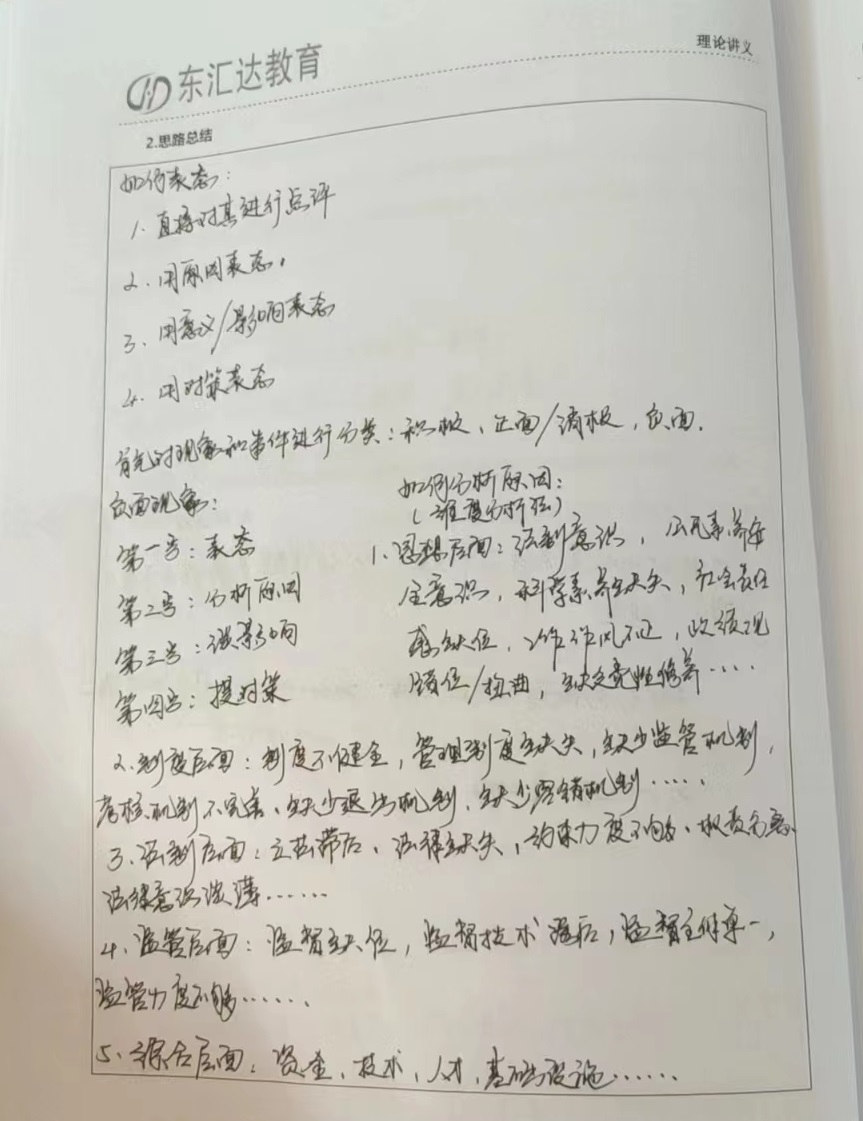 东汇达教育
理论讲义
2.思路总结
如何表态：
1. 直接对其进行点评
2. 用原因表态。
3. 用意义/影响表态
4. 用对策表态
首先对现象和事件进行分类：积极、正面/消极，负面.
负面现象：
第一步：表态
第二步：分析原因
第三步：谈影响
第四步：提对策
如何分析原因：
（维度分析法）
1. 思想层面：法制意识，公民素养安
全意识，科学素养缺失，社会责任
感缺位，工作作风不正，政绩观
错位/扭曲，缺乏党性修养....
2. 制度层面：制度不健全，管理制度缺失，缺少监管机制，
考核机制不完善、缺少退出机制、缺少容错机制.....
3. 法制层面：立法滞后、法律缺失，约束力度不够、权责
法律意识淡薄......
4. 监管层面：监督缺位，监督技术落后，监督主体单一，
监管力度不够......
5. 综合层面：资金、技术、人才、基础设施......